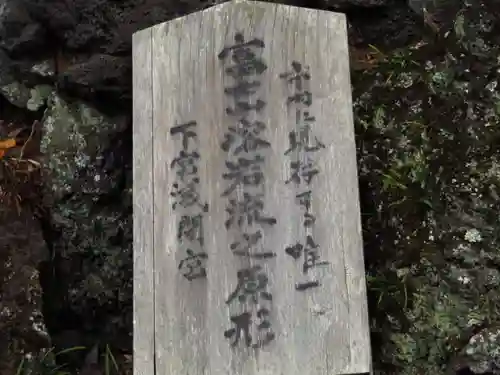 市内に現存する唯一
富士溶岩流之原形
下宮浅間宮